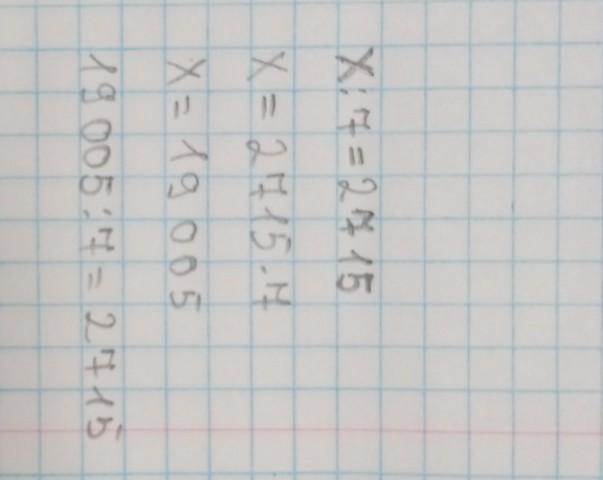 X:7=2715
X=2715.7
X=19005
19005:7=2715